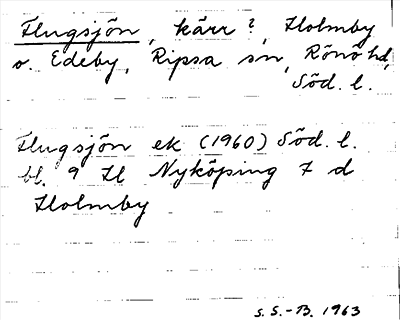 Flugsjön, kärr?, Holmby
o. Edeby, Ripsa sn, Rönö hd,
Söd. l.
Flugsjön ek (1960) Söd. l.
bl. 9 H Nyköping 7 d
Holmby
S. S.-B. 1963